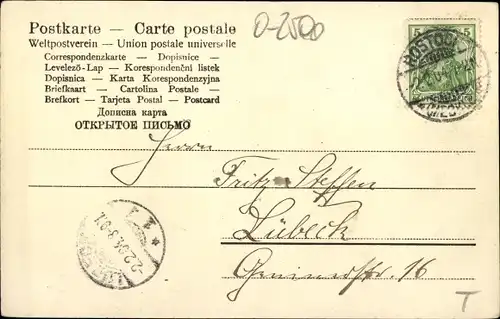 Postkarte — Carte postale
Weltpostverein — Union postale universelle
Correspondenzkarte — Dopisnice —
Levelező-Lap — Korespondenční listek
Dopisnica — Karta Korespondenzyjna
Briefkaart — Cartolina Postale —
Brefkort — Tarjeta Postal — Postcard
Дописна карта
ОТКРЫТОЕ ПИСЬМО
0-2500
5 5
ROSTOCK
Herrn
Fritz Steffen
Lübeck
16
T
LÜBECK
2.2.04.